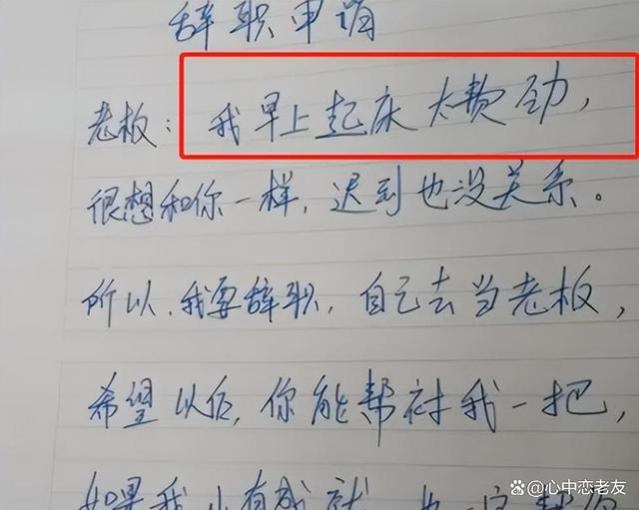 辞职申请
老板：我早上起床太费劲，
很想和你一样，迟到也没关系。
所以，我要辞职，自己去当老板，
希望以后，你能帮衬我一把，
如果我小有成就
@心中恋老友